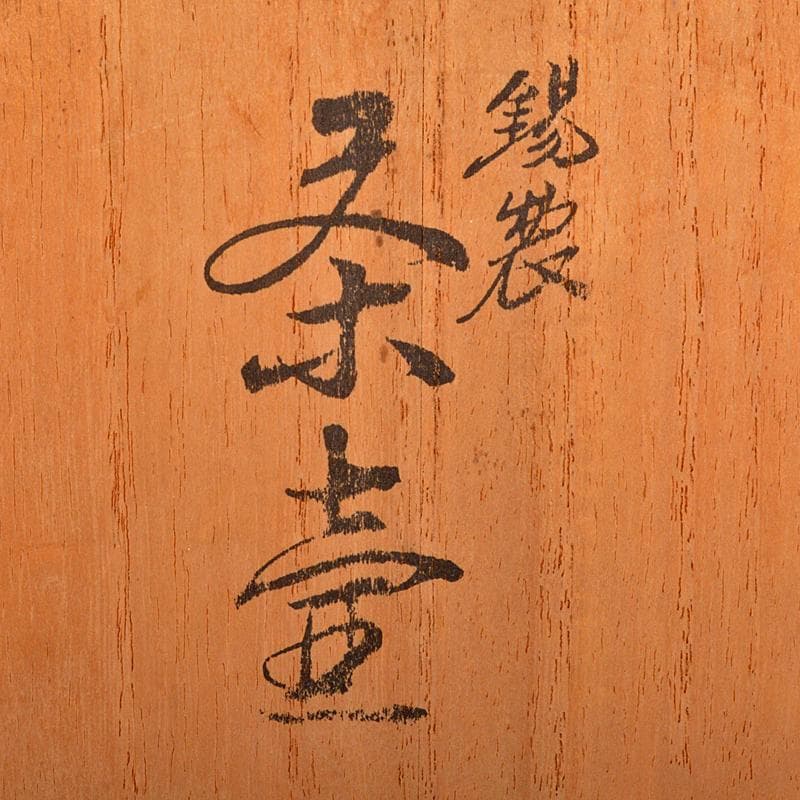 錫製
茶壷